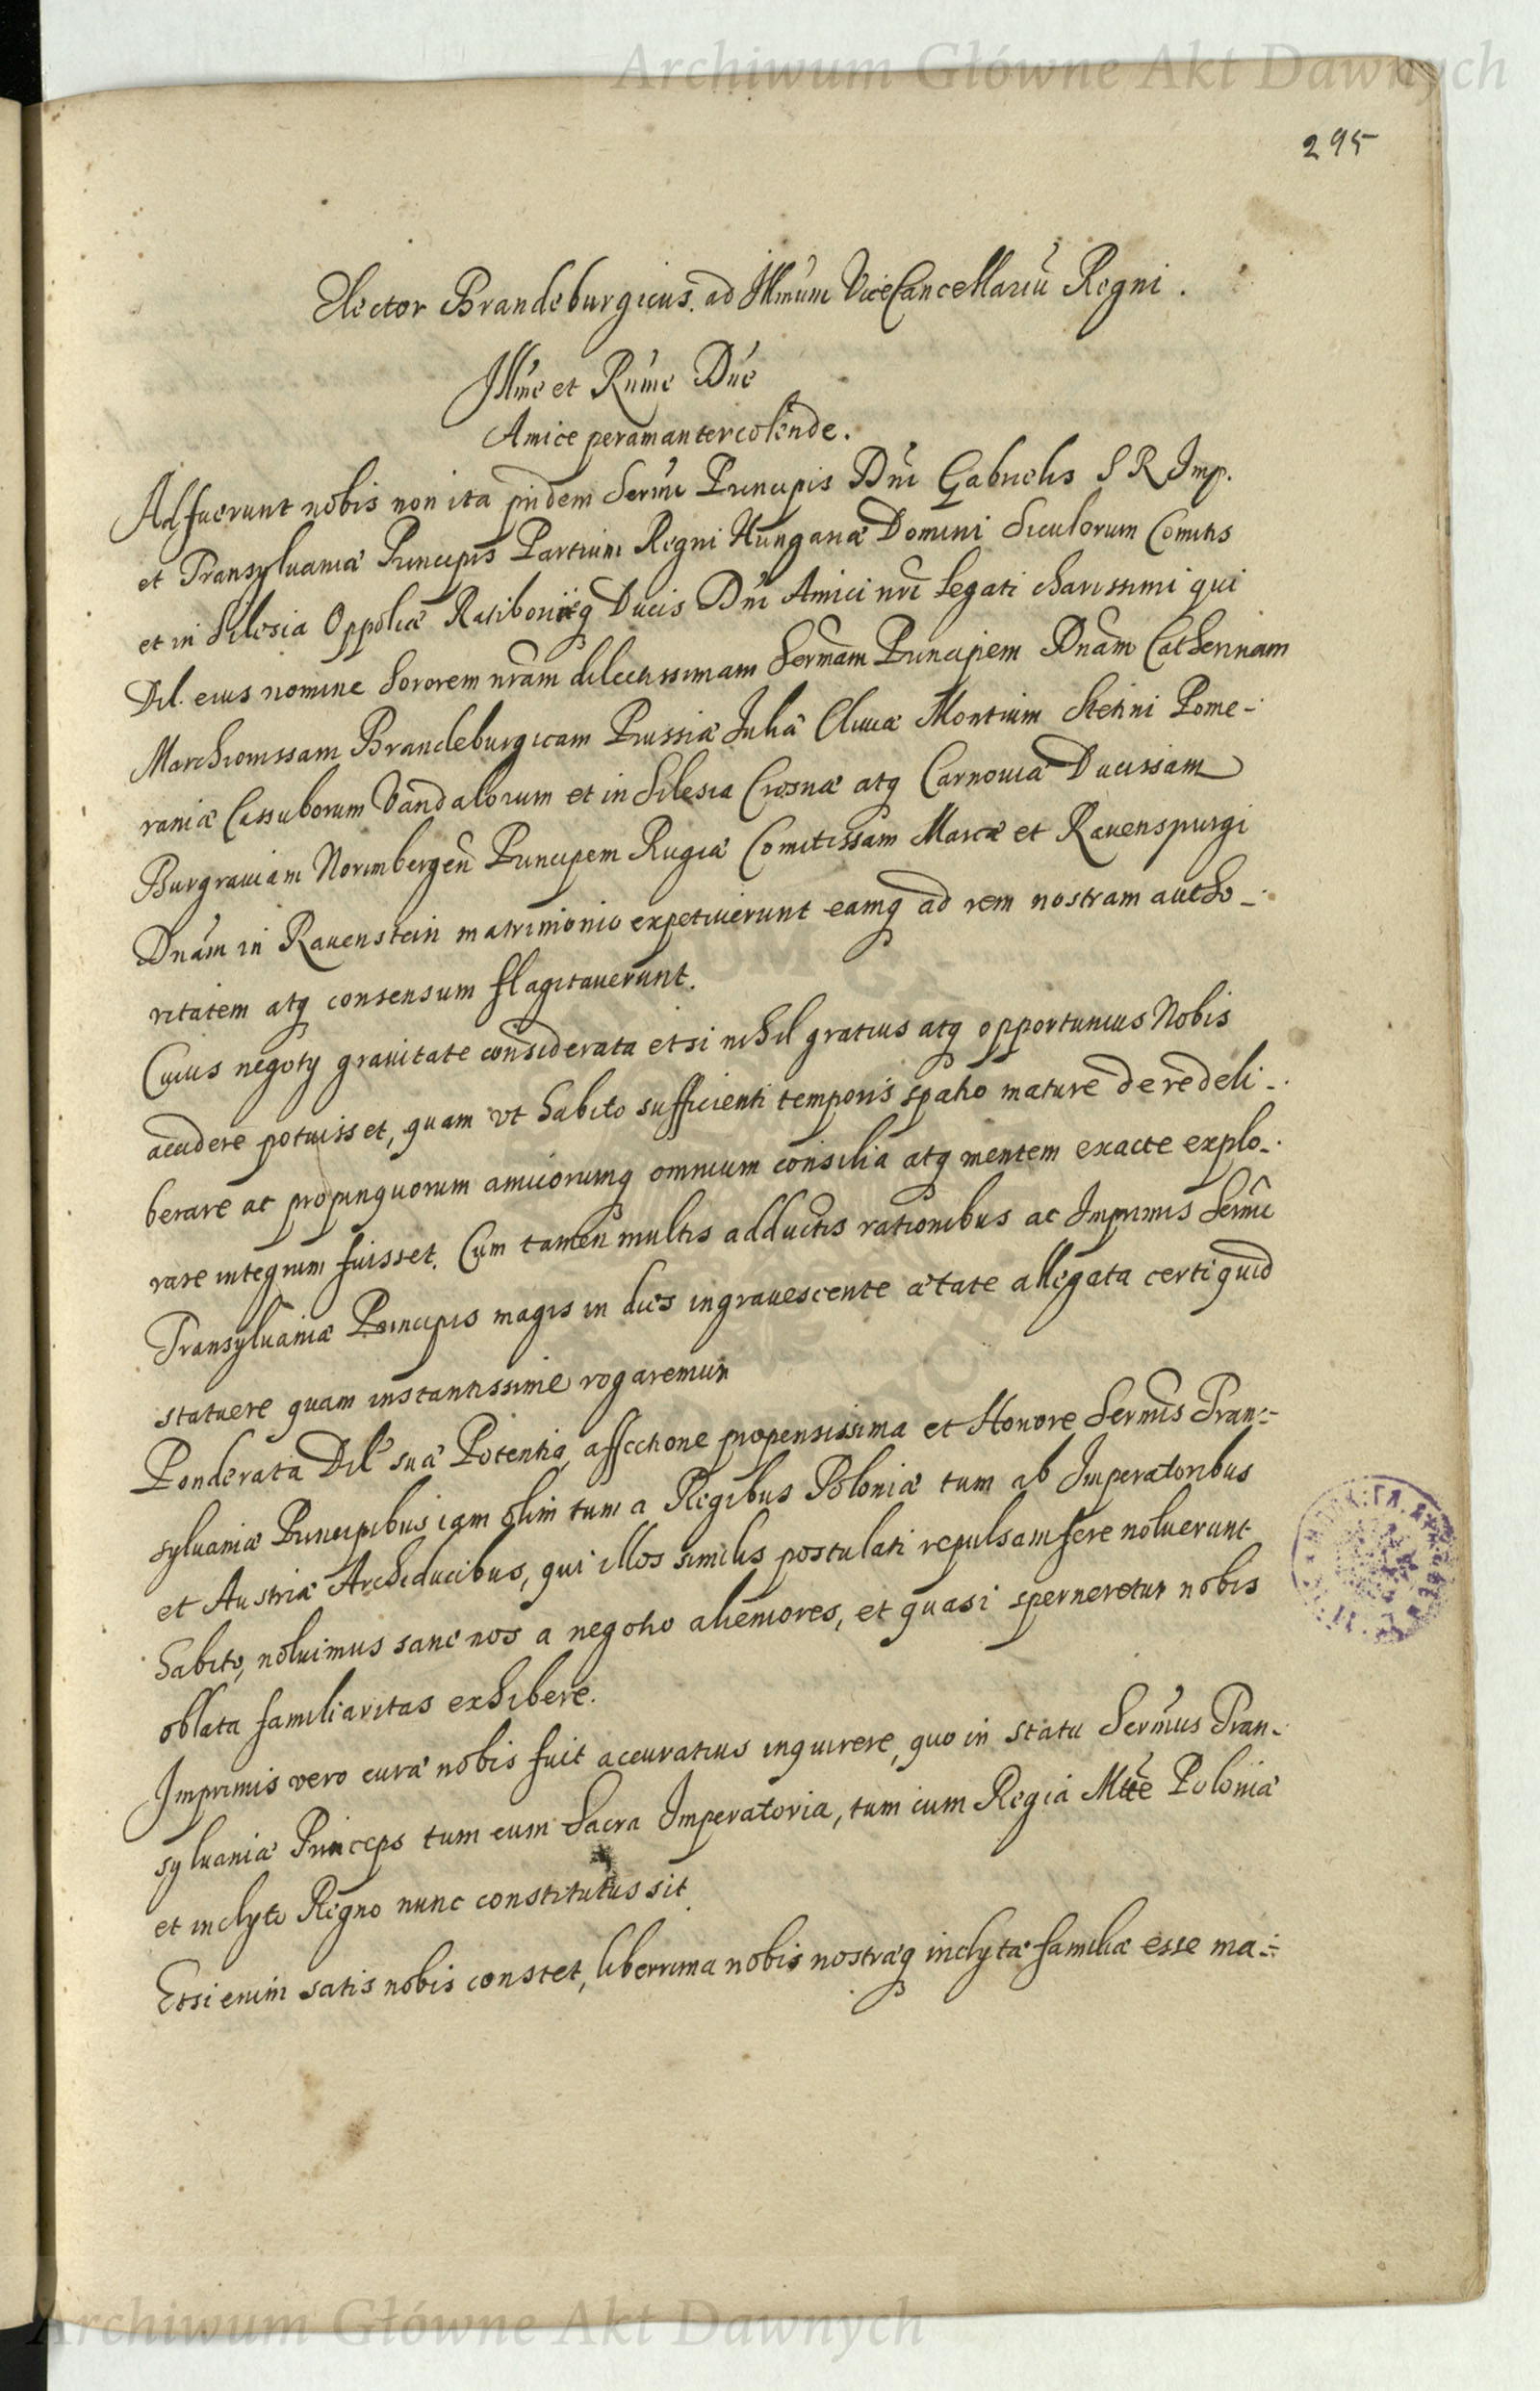 Archiwum Główne Akt Dawnych
295
Elector Brandeburgicus. ad Illmum ViceCancellariū Regni.
Illme et Rume Dne
Amice peramanter colende.
Adfuerunt nobis non ita pridem Sermi Principis Dni Gabrielis S R Imp.
et Transyluaniæ Principis Partium Regni Hungariæ Domini Siculorum Comitis
et in Silesia Oppoliæ Ratiboriæq Ducis Dni Amici nri legati charissimi qui
Dil. eius nomine Sororem nram dilectissimam Sermam Principem Dnam Catherinam
Marchionissam Brandeburgicam Prussiæ Juliæ Cliuiæ Montium Stetini Pome-
raniæ Cassuborum Vandalorum et in Silesia Crosnæ atq Carnouiæ Ducissam
Burgrauiam Norimbergen Principem Rugiæ Comitissam Marcæ et Rauenspurgi
Dnam in Rauenstein matrimonio expetiuerunt eamq ad rem nostram autho-
ritatem atq consensum flagitauerunt.
Cuius negoty grauitate considerata etsi nihil gratius atq opportunius Nobis
accidere potuisset, quam vt habito sufficienti temporis spatio mature de re deli-
berare ac propinquorum amicorumq omnium consilia atq mentem exacte explo-
rare integrum fuisset. Cum tamen multis adductis rationibus ac Imprimis Sermi
Transyluaniæ Principis magis in dies ingrauescente ætate allegata certi quid
statuere quam instantissime rogaremur
Ponderata Dil suæ Potentia, affectione propensissima et Honore Sermis Tran-
syluaniæ Principibus iam olim tum a Regibus Poloniæ tum ab Imperatoribus
et Austriæ Archiducibus, qui illos similis postulati repulsam fere noluerunt
habito, noluimus sane nos a negotio alieniores, et quasi sperneretur nobis
oblata familiaritas exhibere.
Imprimis vero curæ nobis fuit accuratius inquirere, quo in statu Sermus Tran-
syluaniæ Princeps tum cum Sacra Imperatoria, tum cum Regia Mtte Poloniæ
et inclyto Regno nunc constitutus sit.
Etsi enim satis nobis constet, liberrima nobis nostræq inclytæ familiæ esse ma-
Archiwum Główne Akt Dawnych